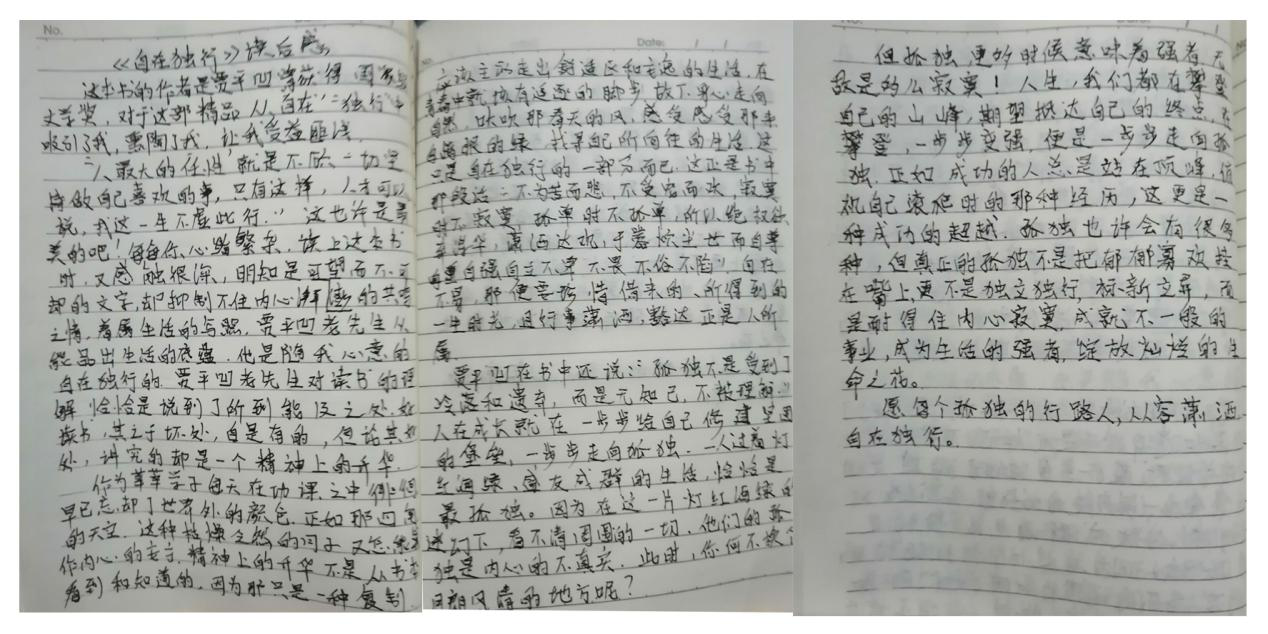 No.
《自在独行》读后感
这本书的作者是贾平凹曾获得国家
文学奖,对于这部精品从“自在”“独行”中
吸引了我,熏陶了我,让我受益匪浅
“人最大的任性就是不顾一切坚
持做自己喜欢的事,只有这样,人才可以
说,我这一生不虚此行。”这也许是最
美的吧!每每你心绪繁杂,读上这本书
时,又感触很深,明知是可望而不可
却的文字,却抑制不住内心澎湃的共鸣
之情,着属生活的写照,贾平凹老先生从
能品出生活的底蕴,他是随我心意的
自在独行的.贾平凹老先生对读书的理
解恰恰是说到了所到能及之处,如
读书,其之于坏处,自是有的,但论其好
处,讲究的却是一个精神上的升华.
作为莘莘学子每天在功课之中徘徊
早已忘却了世界外的颜色.正如那四角
的天空.这种枯燥乏然的日子又怎能
作内心的主宰,精神上的升华不是从书本
看到和知道的,因为那只是一种复制
Date: / /
应该主动走出舒适区和安逸的生活,在
青春中就该有追逐的脚步放下身心走向
自然,吹吹那春天的风,感受感受那来
自春根的绿,找寻自己所向往的生活,这
只是自在独行的一部分而已.这正是书中
那段话:不为苦而悲,不受宠而欢,寂寞
时不寂寞,孤单时不孤单,所以绝权欲
弃浮华,潇洒达观,于嚣烦尘世而自尊
自重自强自立不卑不畏不俗不谄”自在
不易,那便要珍惜借来的、所得到的
一生时光,且行事潇洒,豁达正是人所
属
贾平凹在书中还说:“孤独不是受到了
冷落和遗弃,而是无知己,不被理解.”
人在成长就在一步步给自己修建坚固
的堡垒,一步步走向孤独.一人过着灯
红酒绿、宾友成群的生活,恰恰是
最孤独。因为在这一片灯红酒绿的
迷幻下,看不清周围的一切,他们的孤
独是内心的不真实.此时,你何不换个
月朗风清的地方呢?
但孤独更多时候意味着强者,无
敌是多么寂寞!人生,我们都在攀登
自己的山峰,期望抵达自己的终点,在
攀登,一步步变强,便是一步步走向孤
独.正如成功的人总是站在顶峰,俯
瞰自己滚爬时的那种经历,这更是一
种成功的超越.孤独也许会有很多
种,但真正的孤独不是把郁郁寡欢挂
在嘴上,更不是独立独行,标新立异,而
是耐得住内心寂寞,成就不一般的
事业,成为生活的强者,绽放灿烂的生
命之花。
愿每个孤独的行路人,从容潇洒
自在独行。